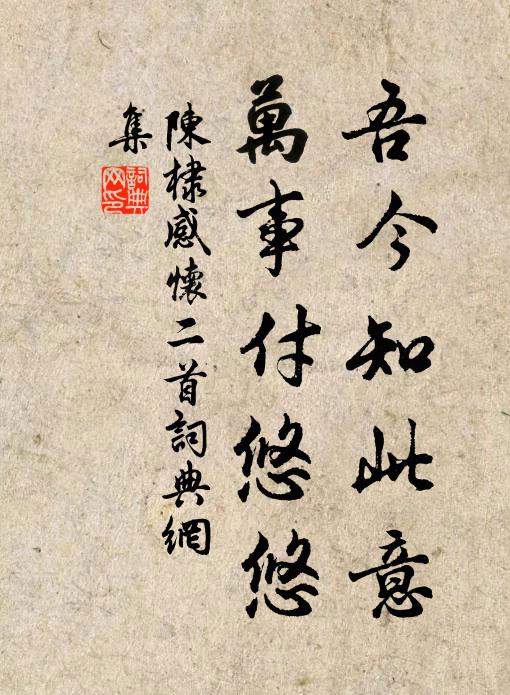 吾今知此意
萬事付悠悠
陳棣感懷二首詞典網
集
詞典网印